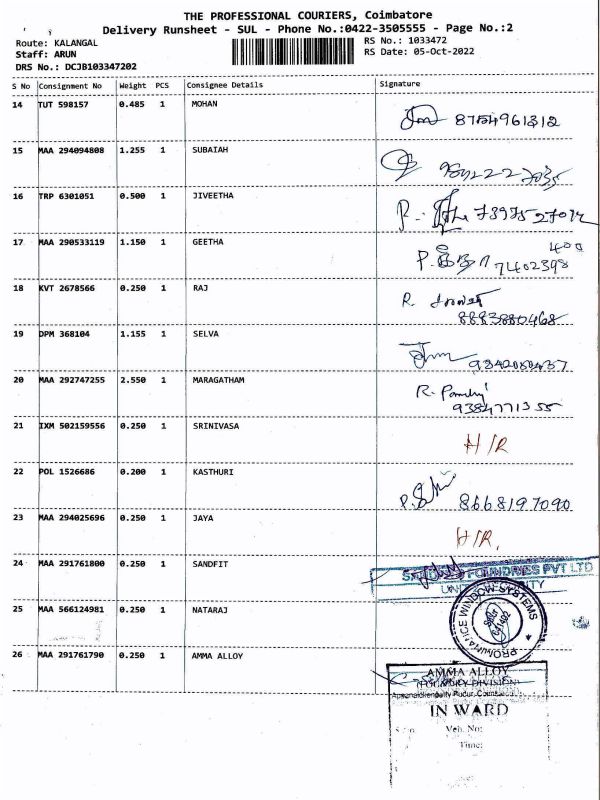 THE PROFESSIONAL COURIERS, Coimbatore
Delivery Runsheet - SUL - Phone No.:0422-3505555 - Page No.:2
Route: KALANGAL
RS No.: 1033472
Staff: ARUN
RS Date: 05-Oct-2022
DRS No.: DCJB103347202
S No Consignment No Weight PCS Consignee Details Signature
14 TUT 598157 0.485 1 MOHAN
15 MAA 294094808 1.255 1 SUBAIAH
16 TRP 6301051 0.500 1 JIVEETHA
17 MAA 290533119 1.150 1 GEETHA
7402398
400
18 KVT 2678566 0.250 1 RAJ
R.
8883880468
19 DPM 368104 1.155 1 SELVA
20 MAA 292747255 2.550 1 MARAGATHAM
9384771355
21 IXM 502159556 0.250 1 SRINIVASA H/R
22 POL 1526686 0.200 1 KASTHURI 8668197090
23 MAA 294025696 0.250 1 JAYA H/R.
24 MAA 291761800 0.250 1 SANDFIT
FOUNDRIES PVT LTD
25 MAA 566124981 0.250 1 NATARAJ
PROMINANCE WINDOW SYSTEMS
26 MAA 291761790 0.250 1 AMMA ALLOY
AMMA ALLOY
(FOUNDRY DIVISION)
IN WARD
Veh. No:
Time: